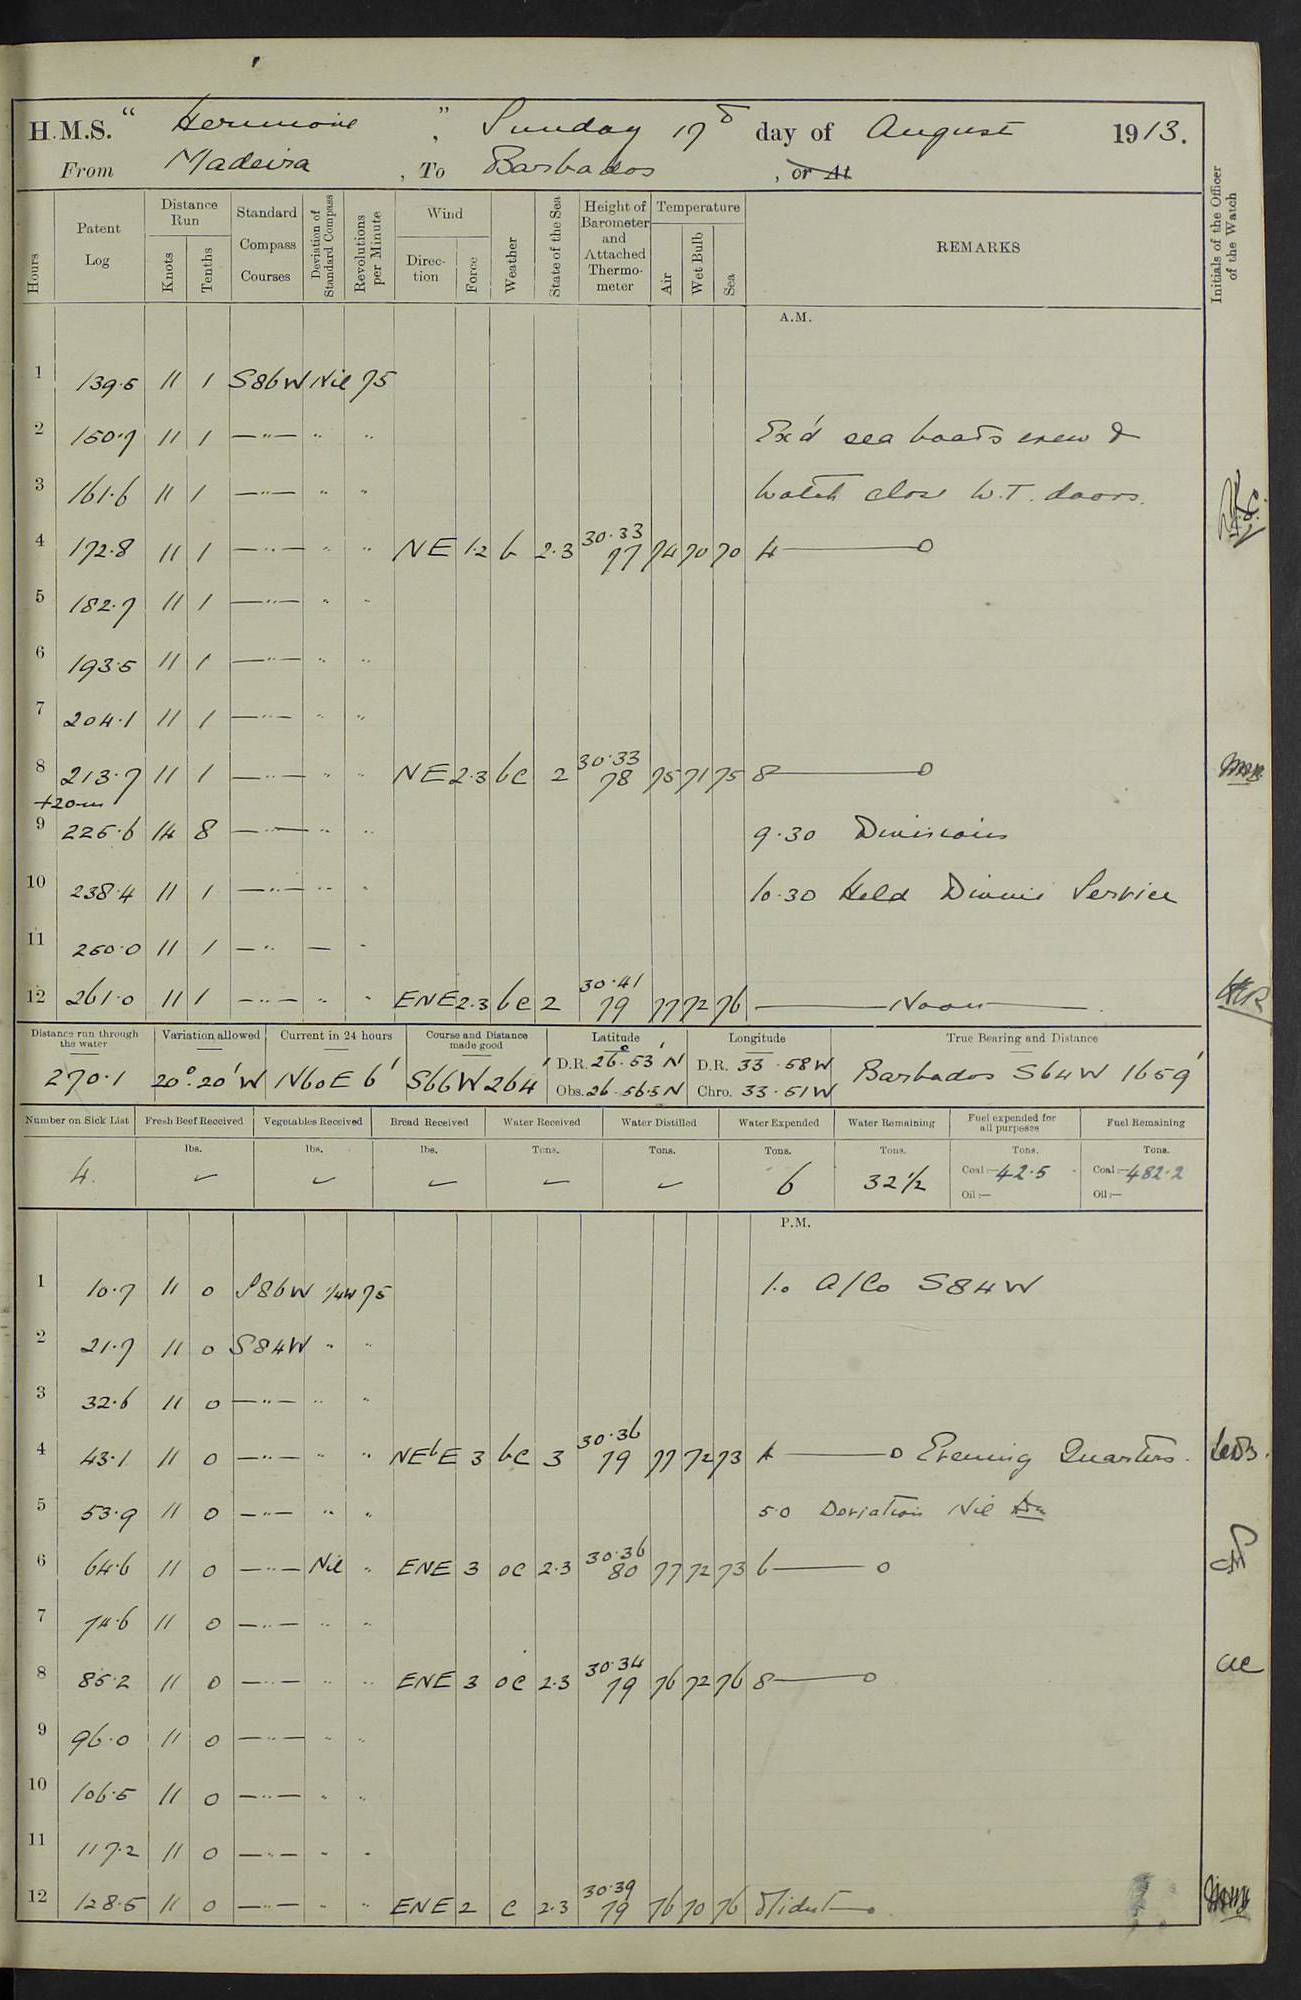 H.M.S. " Hermione ", Sunday 17th day of August 1913.
From Madeira , To Barbados , or At
Hours
Patent Log
Distance Run
Knots
Tenths
Standard Compass Courses
Deviation of Standard Compass
Revolutions per Minute
Wind
Direction
Force
Weather
State of the Sea
Height of Barometer and Attached Thermometer
Temperature
Air
Wet Bulb
Sea
REMARKS
Initials of the Officer of the Watch
A.M.
1 139.5 11 1 S86W Nil 75
2 150.7 11 1 —"— " " Ex'd sea boats crew &
3 161.6 11 1 —"— " " watch close W.T. doors.
4 172.8 11 1 —"— " " NE 1.2 b 2.3 30.33 77 74 70 70 4 — 0
5 182.7 11 1 —"— " "
6 193.5 11 1 —"— " "
7 204.1 11 1 —"— " "
8 213.7 11 1 —"— " " NE 2.3 bc 2 30.33 78 75 71 75 8 — 0
+20m
9 225.6 14 8 —"— " " 9.30 Divisions
10 238.4 11 1 —"— " " 10.30 Held Divine Service
11 250.0 11 1 —"— "
12 261.0 11 1 —"— " " ENE 2.3 bc 2 30.41 79 77 72 76 — Noon —
Distance run through the water
Variation allowed
Current in 24 hours
Course and Distance made good
Latitude
Longitude
True Bearing and Distance
270.1 20°.20' W N60E 6' S66W 264' D.R. 26°.53' N D.R. 33.58W Barbados S64W 1659'
Obs. 26.56.5N Chro. 33.51W
Number on Sick List
Fresh Beef Received
Vegetables Received
Bread Received
Water Received
Water Distilled
Water Expended
Water Remaining
Fuel expended for all purposes
Fuel Remaining
lbs. lbs. lbs. Tons. Tons. Tons. Tons. Tons. Tons.
4. 6 32½ Coal:— 42.5 Coal:— 482.2
Oil:— Oil:—
P.M.
1 10.7 11 0 S86W ¼W 75 1.0 A/Co S84W
2 21.7 11 0 S84W " "
3 32.6 11 0 —"— " "
4 43.1 11 0 —"— " " NEbE 3 bc 3 30.36 79 77 72 73 4 — 0 Evening Quarters.
5 53.9 11 0 —"— " " 5.0 Deviation Nil
6 64.6 11 0 —"— Nil " ENE 3 oc 2.3 30.36 80 77 72 73 6 — 0
7 74.6 11 0 —"— " "
8 85.2 11 0 —"— " " ENE 3 oc 2.3 30.34 79 76 72 76 8 — 0
9 96.0 11 0 —"— " "
10 106.5 11 0 —"— " "
11 117.2 11 0 —"— " "
12 128.5 11 0 —"— " " ENE 2 c 2.3 30.39 79 76 70 76 Midnt